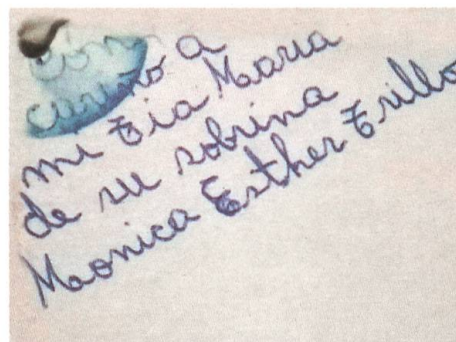 Con
cariño a
mi tia Maria
de su sobrina
Monica Esther Trillo